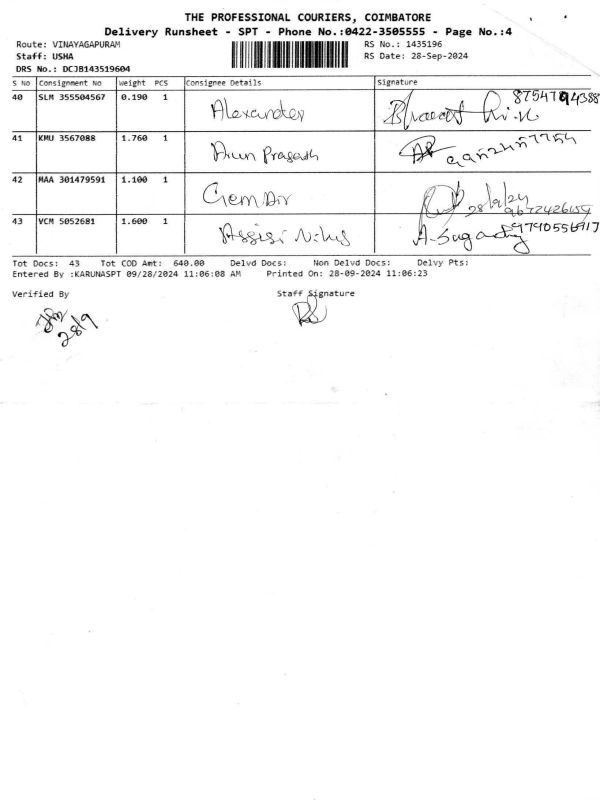 THE PROFESSIONAL COURIERS, COIMBATORE
Delivery Runsheet - SPT - Phone No.:0422-3505555 - Page No.:4
Route: VINAYAGAPURAM RS No.: 1435196
Staff: USHA RS Date: 28-Sep-2024
DRS No.: DCJB143519604
S No Consignment No Weight PCS Consignee Details Signature
40 SLM 355504567 0.190 1 Alexander
41 KMU 3567088 1.760 1 Arun Prasath
42 MAA 301479591 1.100 1 Gem Air 28/9/24
43 VCM 5052681 1.600 1 Assisi
Tot Docs: 43 Tot COD Amt: 640.00 Delvd Docs: Non Delvd Docs: Delvy Pts:
Entered By :KARUNASPT 09/28/2024 11:06:08 AM Printed On: 28-09-2024 11:06:23
Verified By Staff Signature
28/9